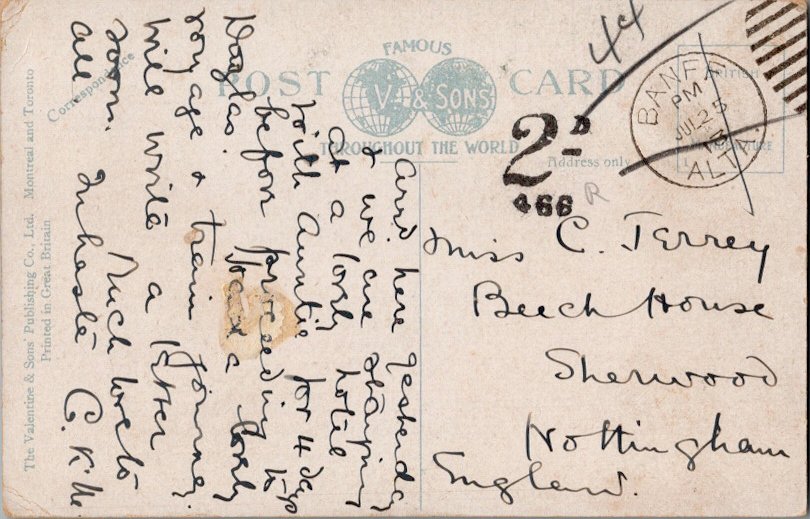 The Valentine & Sons' Publishing Co., Ltd. Montreal and Toronto
Printed in Great Britain
FAMOUS
POST CARD
V. & SONS
THROUGHOUT THE WORLD
Correspondence
Address only
44
BANFF
PM
JUL 25
14
ALTA
2D
466
R
Arrd. here yesterday
& we are staying
at a lovely hotel
with Auntie for 4 days
before proceeding to
Douglas. Had a lovely
voyage & train journey.
Will write a letter
soon. Much love to
all In haste C.K.M.
Miss C. Terrey
Beech House
Sherwood
Nottingham
England.